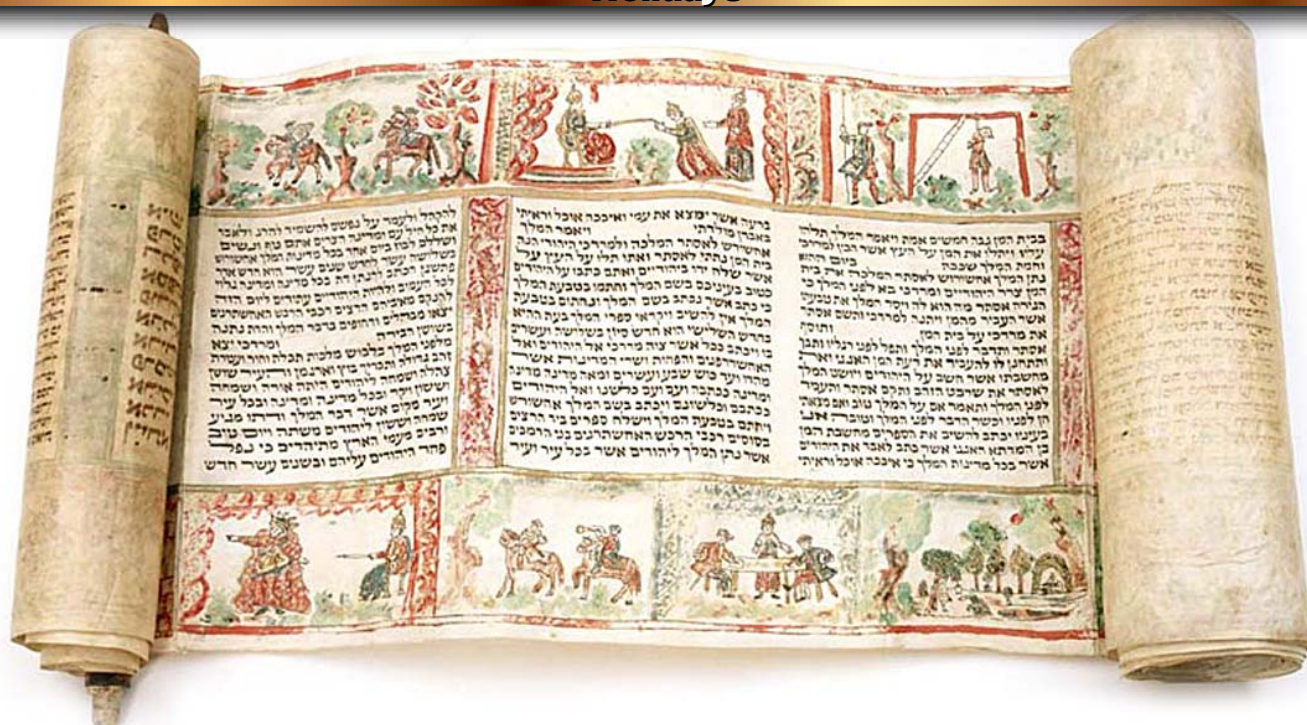 בבית המן גבה חמשים אמה ויאמר המלך תלהו
עליו ויתלו את המן על העץ אשר הכין למרדכי
וחמת המלך שככה ביום ההוא
נתן המלך אחשורוש לאסתר המלכה את בית
המן צרר היהודיים ומרדכי בא לפני המלך כי
הגידה אסתר מה הוא לה ויסר המלך את טבעתו
אשר העביר מהמן ויתנה למרדכי ותשם אסתר
את מרדכי על בית המן ותוסף
אסתר ותדבר לפני המלך ותפל לפני רגליו ותבך
ותתחנן לו להעביר את רעת המן האגגי ואת
מחשבתו אשר חשב על היהודים ויושט המלך
לאסתר את שרבט הזהב ותקם אסתר ותעמד
לפני המלך ותאמר אם על המלך טוב ואם מצאתי
חן לפניו וכשר הדבר לפני המלך וטובה אני
בעיניו יכתב להשיב את הספרים מחשבת המן
בן המדתא האגגי אשר כתב לאבד את היהודים
אשר בכל מדינות המלך כי איככה אוכל וראיתי
ברעה אשר ימצא את עמי ואיככה אוכל וראיתי
באבדן מולדתי ויאמר המלך
אחשורש לאסתר המלכה ולמרדכי היהודי הנה
בית המן נתתי לאסתר ואתו תלו על העץ על
אשר שלח ידו ביהודיים ואתם כתבו על היהודים
כטוב בעיניכם בשם המלך וחתמו בטבעת המלך
כי כתב אשר נכתב בשם המלך ונחתום בטבעת
המלך אין להשיב ויקראו ספרי המלך בעת ההיא
בחדש השלישי הוא חדש סיון בשלושה ועשרים
בו ויכתב ככל אשר צוה מרדכי אל היהודים ואל
האחשדרפנים והפחות ושרי המדינות אשר
מהדו ועד כוש שבע ועשרים ומאה מדינה מדינה
ומדינה ככתבה ועם ועם כלשנו ואל היהודים
ככתבם וכלשונם ויכתב בשם המלך אחשורש
ויחתם בטבעת המלך וישלח ספרים ביד הרצים
בסוסים רכבי הרכש האחשתרנים בני הרמכים
אשר נתן המלך ליהודים אשר בכל עיר ועיר
להקהל ולעמד על נפשם להשמיד להרג ולאבד
את כל חיל עם ומדינה הצרים אתם טף ונשים
ושללם לבוז ביום אחד בכל מדינות המלך אחשורוש
בשלושה עשר לחדש שנים עשר הוא חדש אדר
פתשגן הכתב להנתן דת בכל מדינה ומדינה גלוי
לכל העמים ולהיות היהודיים עתידים ליום הזה
להנקם מאיביהם הרצים רכבי הרכש האחשתרנים
יצאו מבהלים ודחופים בדבר המלך והדת נתנה
בשושן הבירה ומרדכי יצא
מלפני המלך בלבוש מלכות תכלת וחור ועטרת
זהב גדולה ותכריך בוץ וארגמן והעיר שושן
צהלה ושמחה ליהודים היתה אורה ושמחה
וששון ויקר ובכל מדינה ומדינה ובכל עיר
ועיר מקום אשר דבר המלך ודתו מגיע
שמחה וששון ליהודים משתה ויום טוב
ורבים מעמי הארץ מתיהדים כי נפל
פחד היהודים עליהם ובשנים עשר חדש